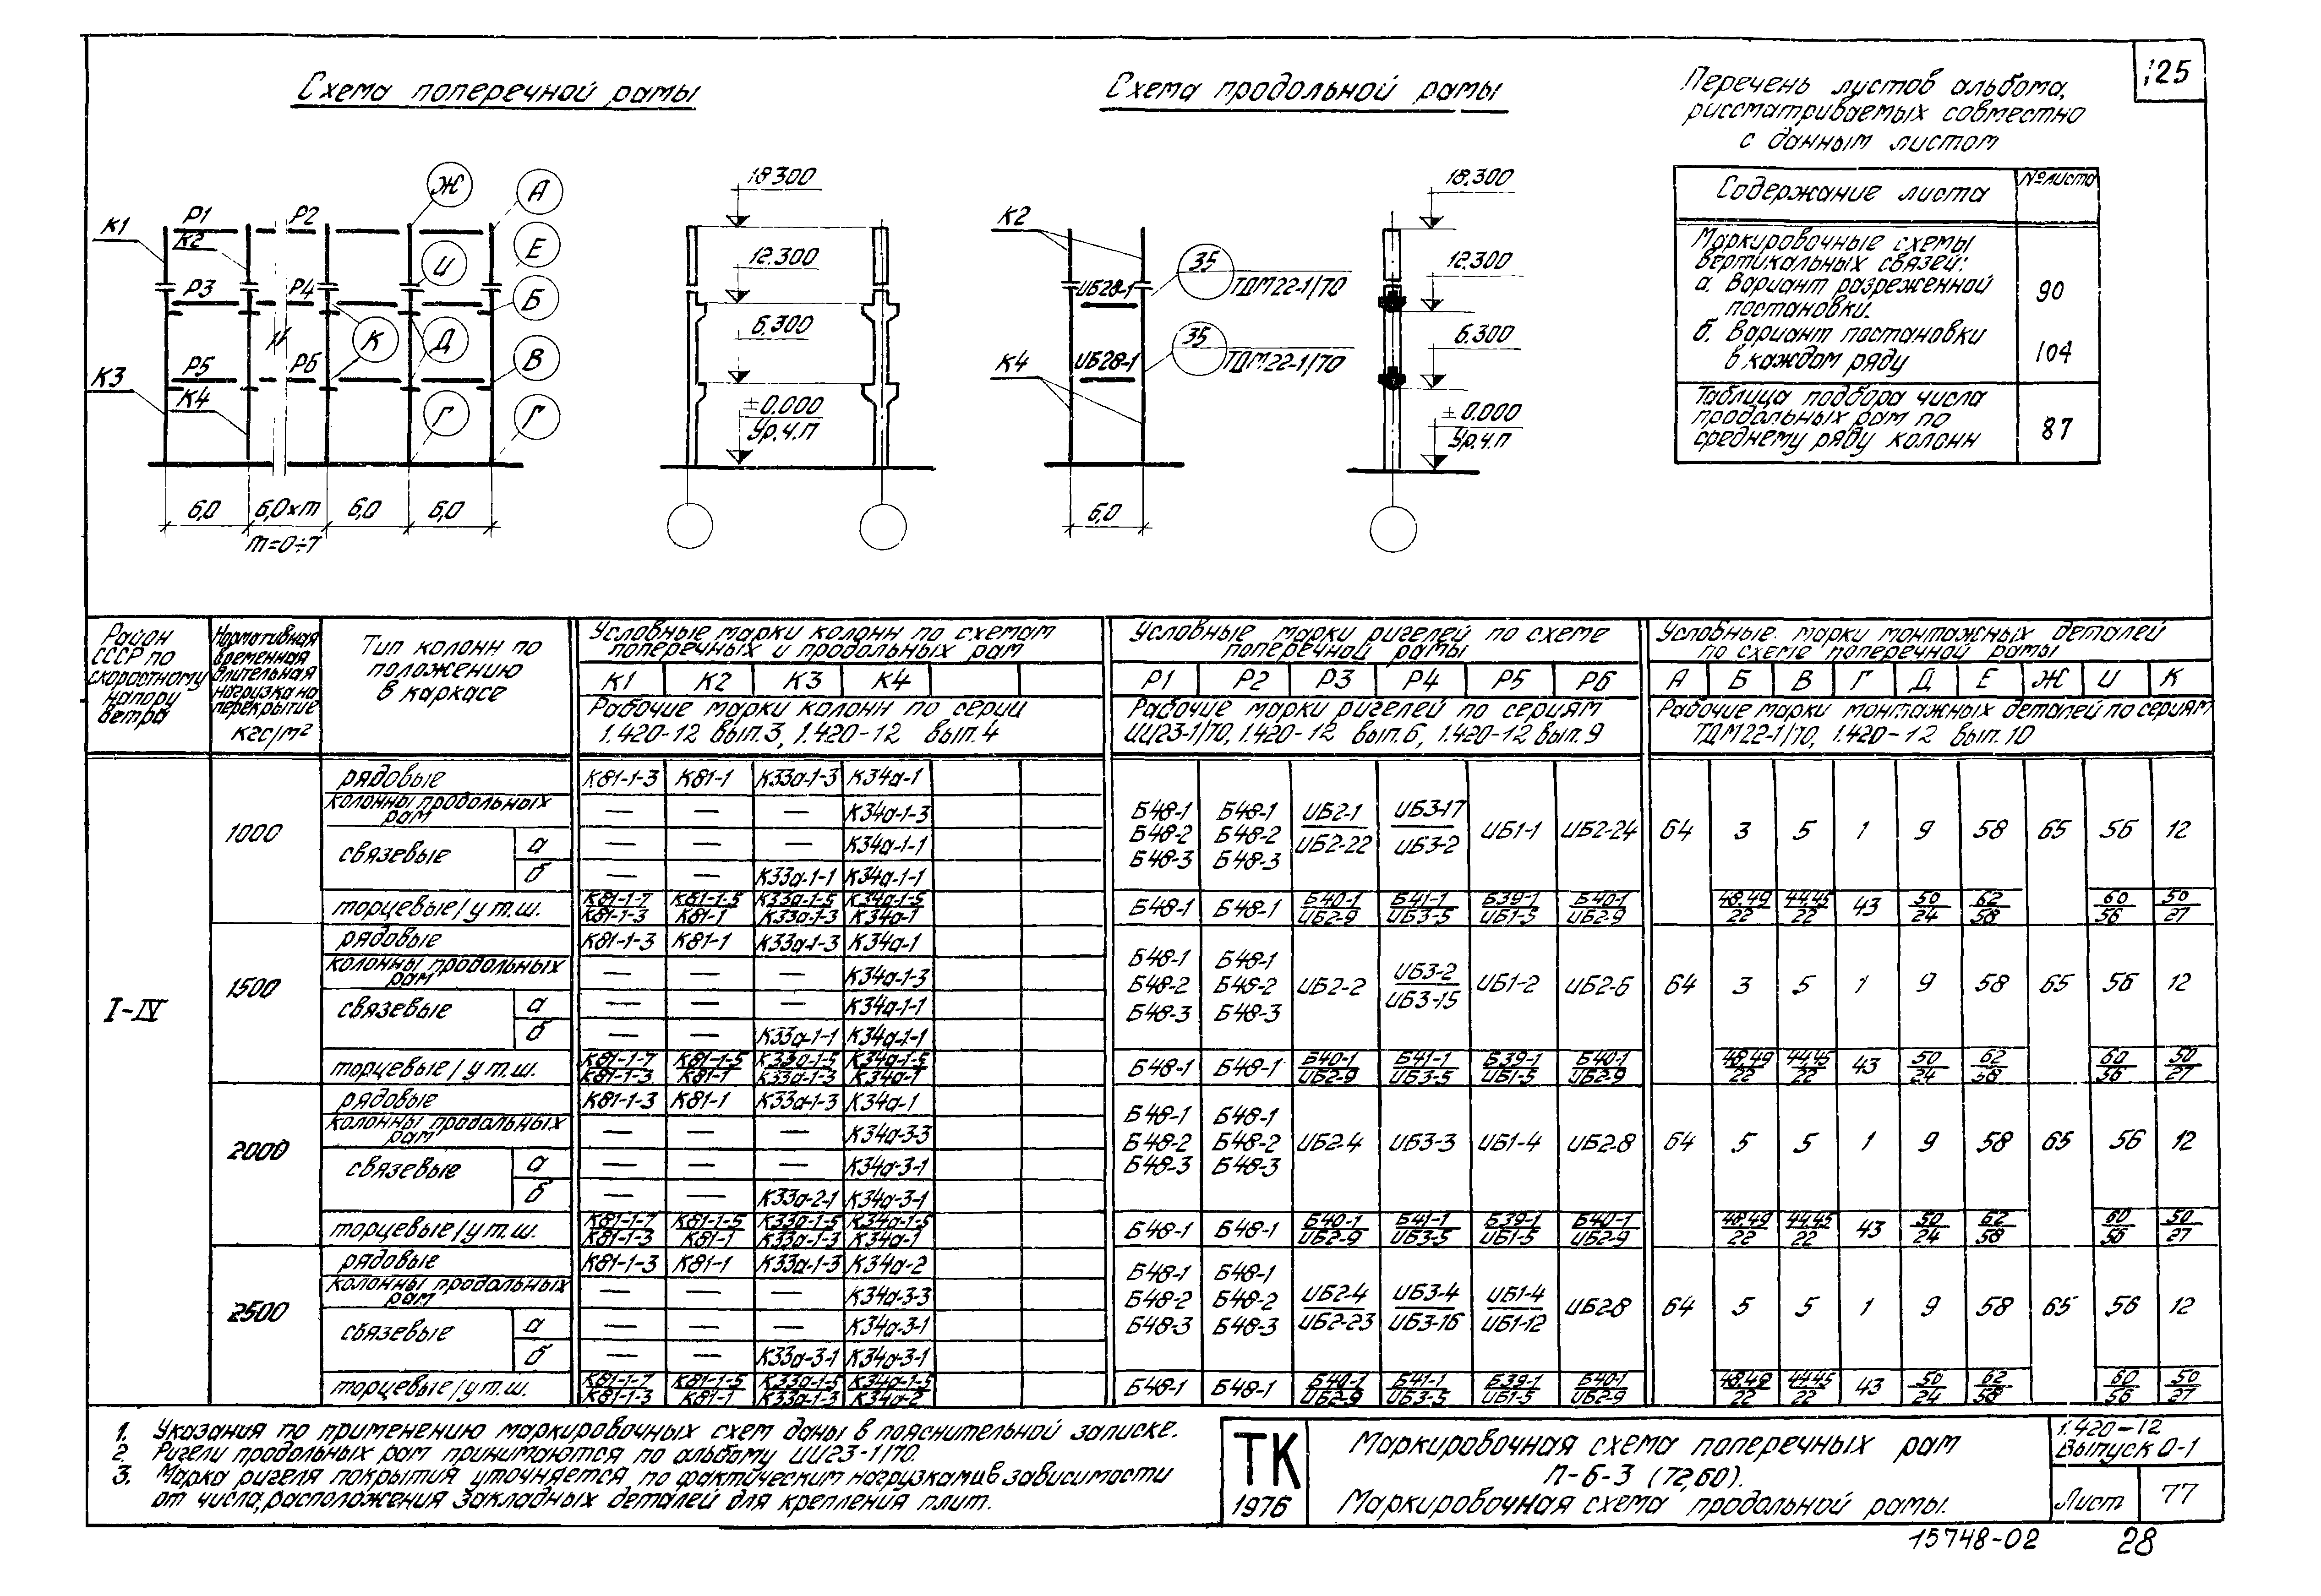 125
Схема поперечной рамы
Схема продольной рамы
Перечень листов альбома,
рассматриваемых совместно
с данным листом
Содержание листа
№ листа
Маркировочные схемы
вертикальных связей:
а. Вариант разреженной
постановки.
90
б. Вариант постановки
в каждом ряду
104
Таблица подбора числа
продольных рам по
среднему ряду колонн
87
К1 Р1 К2 Р2 Ж А
Е
И
Р3 Р4 Б
К Д В
К3 Р5 Р6
К4 Г Г
6,0 6,0хm 6,0 6,0
m=0÷7
18.300
12.300
6.300
±0.000
Ур.ч.п
К2
ИБ28-1 35 ТДМ22-1/70
К4 ИБ28-1 35 ТДМ22-1/70
6,0
18.300
12.300
6.300
±0.000
Ур.ч.п
Район
СССР по
скоростному
напору
ветра
Нормативная
временная
длительная
нагрузка на
перекрытие
кгс/м²
Тип колонн по
положению
в каркасе
Условные марки колонн по схемам
поперечных и продольных рам
К1 К2 К3 К4
Рабочие марки колонн по серии
1.420-12 вып.3, 1.420-12 вып.4
Условные марки ригелей по схеме
поперечной рамы
Р1 Р2 Р3 Р4 Р5 Р6
Рабочие марки ригелей по сериям
ИИ23-1/70, 1.420-12 вып.6, 1.420-12 вып.9
Условные марки монтажных деталей
по схеме поперечной рамы
А Б В Г Д Е Ж И К
Рабочие марки монтажных деталей по сериям
ТДМ22-1/70, 1.420-12 вып.10
I-IV
1000
рядовые К81-1-3 К81-1 К33а-1-3 К34а-1
колонны продольных
рам — — — К34а-1-3
связевые а — — — К34а-1-1
б — — К33а-1-1 К34а-1-1
Б48-1 Б48-1 ИБ2-1 ИБ3-17
Б48-2 Б48-2 ИБ1-1 ИБ2-24 64 3 5 1 9 58 65 56 12
Б48-3 Б48-3 ИБ2-22 ИБ3-2
торцевые/у т.ш. К81-1-7 К81-1-5 К33а-1-5 К34а-1-5 Б48-1 Б48-1 Б40-1 Б41-1 Б39-1 Б40-1 48,49 44,45 43 50 62 60 50
К81-1-3 К81-1 К33а-1-3 К34а-1 ИБ2-9 ИБ3-5 ИБ1-5 ИБ2-9 22 22 24 58 56 27
1500
рядовые К81-1-3 К81-1 К33а-1-3 К34а-1
колонны продольных
рам — — — К34а-1-3
связевые а — — — К34а-1-1
б — — К33а-1-1 К34а-1-1
Б48-1 Б48-1 ИБ3-2
Б48-2 Б48-2 ИБ2-2 ИБ1-2 ИБ2-6 64 3 5 1 9 58 65 56 12
Б48-3 Б48-3 ИБ3-15
торцевые/у т.ш. К81-1-7 К81-1-5 К33а-1-5 К34а-1-5 Б48-1 Б48-1 Б40-1 Б41-1 Б39-1 Б40-1 48,49 44,45 43 50 62 60 50
К81-1-3 К81-1 К33а-1-3 К34а-1 ИБ2-9 ИБ3-5 ИБ1-5 ИБ2-9 22 22 24 58 56 27
2000
рядовые К81-1-3 К81-1 К33а-1-3 К34а-1
колонны продольных
рам — — — К34а-3-3
связевые а — — — К34а-3-1
б — — К33а-2-1 К34а-3-1
Б48-1 Б48-1
Б48-2 Б48-2 ИБ2-4 ИБ3-3 ИБ1-4 ИБ2-8 64 5 5 1 9 58 65 56 12
Б48-3 Б48-3
торцевые/у т.ш. К81-1-7 К81-1-5 К33а-1-5 К34а-1-5 Б48-1 Б48-1 Б40-1 Б41-1 Б39-1 Б40-1 48,49 44,45 43 50 62 60 50
К81-1-3 К81-1 К33а-1-3 К34а-1 ИБ2-9 ИБ3-5 ИБ1-5 ИБ2-9 22 22 24 58 56 27
2500
рядовые К81-1-3 К81-1 К33а-1-3 К34а-2
колонны продольных
рам — — — К34а-3-3
связевые а — — — К34а-3-1
б — — К33а-3-1 К34а-3-1
Б48-1 Б48-1 ИБ2-4 ИБ3-4 ИБ1-4
Б48-2 Б48-2 ИБ2-8 64 5 5 1 9 58 65 56 12
Б48-3 Б48-3 ИБ2-23 ИБ3-16 ИБ1-12
торцевые/у т.ш. К81-1-7 К81-1-5 К33а-1-5 К34а-1-5 Б48-1 Б48-1 Б40-1 Б41-1 Б39-1 Б40-1 48,49 44,45 43 50 62 60 50
К81-1-3 К81-1 К33а-1-3 К34а-2 ИБ2-9 ИБ3-5 ИБ1-5 ИБ2-9 22 22 24 58 56 27
1. Указания по применению маркировочных схем даны в пояснительной записке.
2. Ригели продольных рам принимаются по альбому ИИ23-1/70.
3. Марка ригеля покрытия уточняется по фактическим нагрузкам и в зависимости
от числа, расположения закладных деталей для крепления плит.
ТК
1976
Маркировочная схема поперечных рам
П-6-3 (72,60).
Маркировочная схема продольной рамы.
1.420-12
Выпуск 0-1
Лист 77
15748-02 28